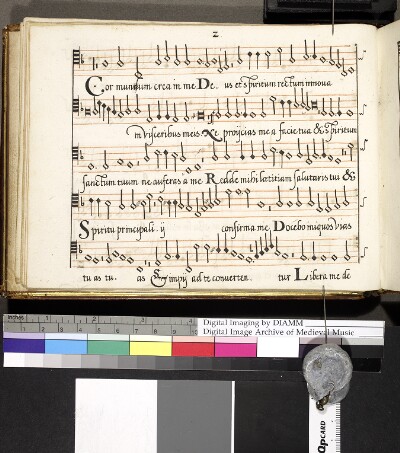 2
Cor mundum crea in me De us et spiritum rectum innova
in visceribus meis Ne proyicias me a facie tua & spiritum
sanctum tuum ne auferas a me Redde mihi lætitiam salutaris tui &
Spiritu principali ij confirma me Docebo iniquos vias
tu as tu. as & impij ad te converten tur Libera me de
inches 1 2 3 4
Digital Imaging by DIAMM
Digital Image Archive of Medieval Music
CARD